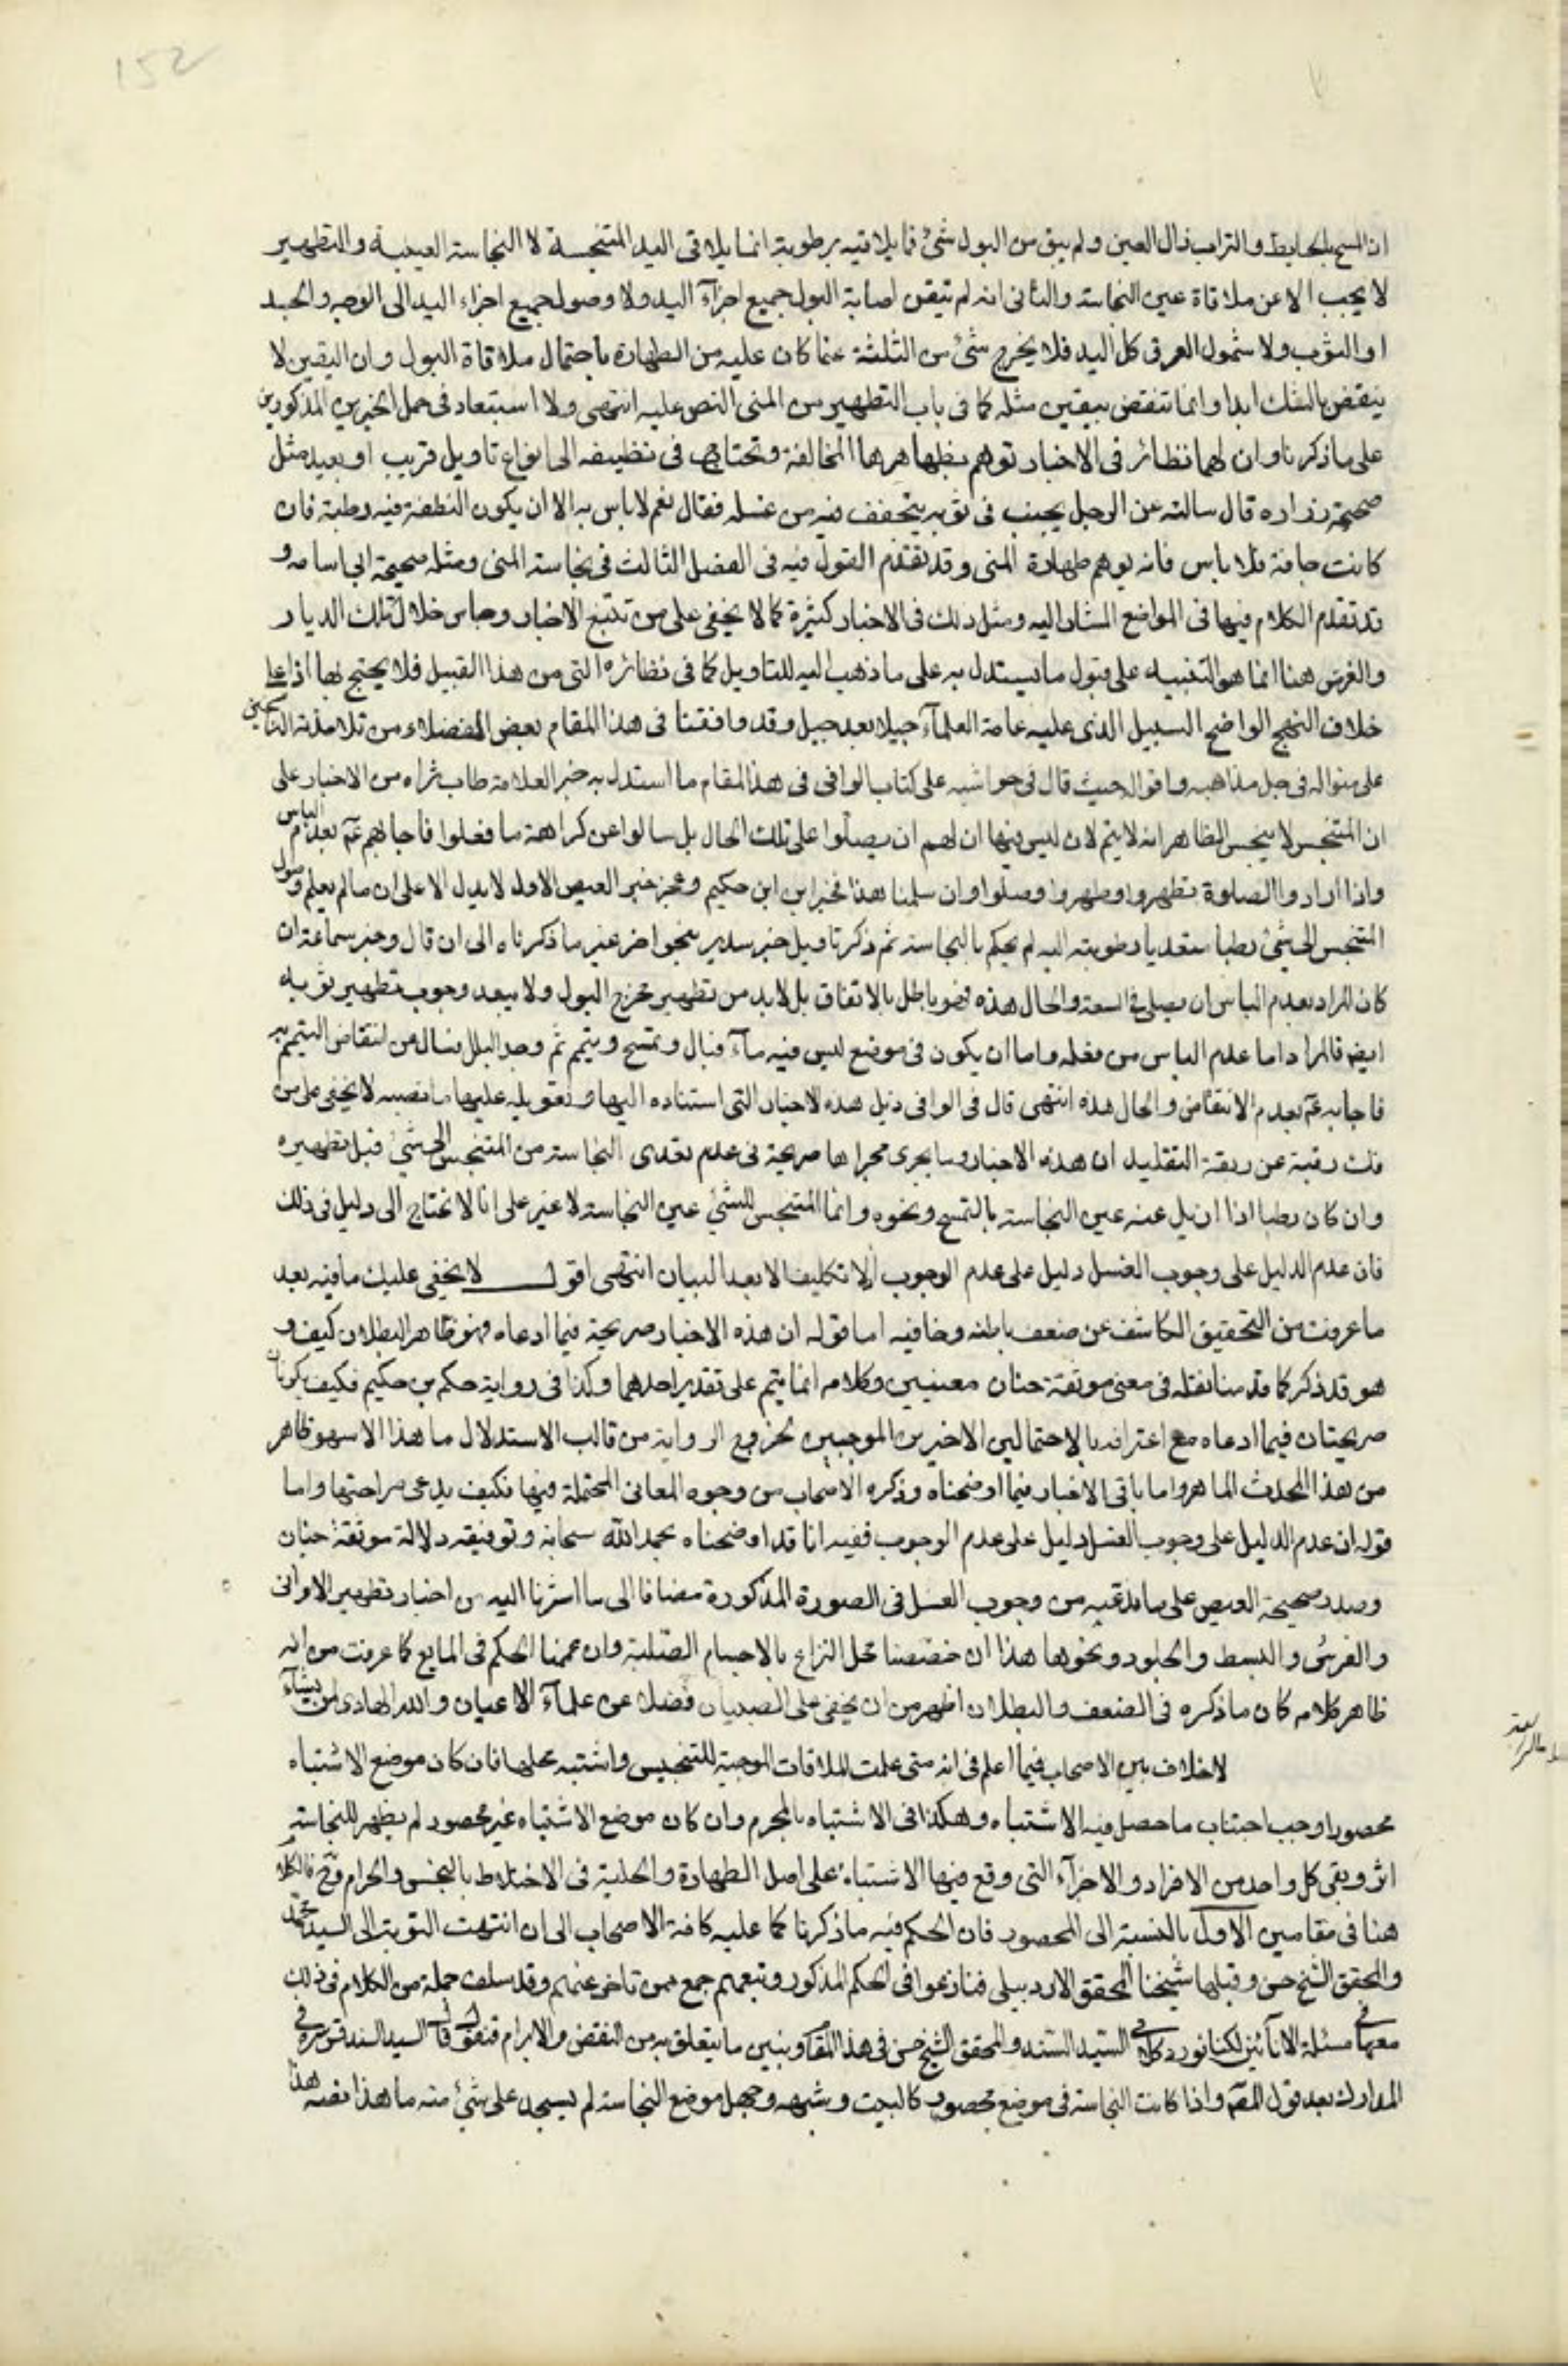 152
ان المسح بالحايط والتراب زال العين ولم يبق من البول شئ فما يلاقيه برطوبة انما يلاقى اليد المتنجسة لا النجاسة العينية والتطهير
لا يجب الا عن ملاقاة عين النجاسة والثانى انه لم تيقن اصابة البول جميع اجزآء اليد ولا وصول جميع اجزاء اليد الى الوجه والجسد
او الثوب ولا شمول العرق كل اليد فلا يخرج شئ من الثلثة عما كان عليه من الطهارة باحتمال ملاقاة البول وان اليقين لا
ينقض بالشك ابدا وانما تنقض بيقين مثله كما فى باب التطهير من المنى النص عليه انتهى ولا استبعاد فى حمل الخبرين المذكورين
على ما ذكرنا وان لهما نظائر فى الاخبار توهم بظهاهرها المخالفة وتحتاج فى الى انواع تاويل قريب او بعيد مثل
صحيحة زراره قال سالته عن الرجل يجنب فى ثوبه يتجفف فيه من غسله فقال نعم لاباس به الا ان يكون النطفة فيه رطبة فان
كانت جافة فلا باس فانه يوهم طهارة المنى وقد تقدم القول فيه فى الفصل الثالث فى نجاسة المنى ومثله صحيحة ابى اسامه و
قد تقدم الكلام فيها فى المواضع المشار اليه ومثل ذلك فى الاخبار كثيرة كما لا يخفى على من تتبع الاخبار وجاس خلال تلك الديار
والغرض هنا انما هو التنبيه على قبول ما يستدل به على ما ذهب اليه للتاويل كما فى نظائره التى من هذا القبيل فلا يحتج بها اذا على
خلاف النهج الواضح السبيل الذى عليه عامة العلمآء جيلا بعد جيل وقد وافقنا فى هذا المقام بعض الفضلاء من تلامذته الناسجين
على منواله فى جل مذاهبه واقواله حيث قال فى حواشيه على كتاب الوافى فى هذا المقام ما استدل به خبر العلامة طاب ثراه من الاخبار على
ان المتنجس لا ينجس الظاهر انه لا يتم لان ليس فيها ان لهم ان يصلّوا على تلك الحال بل سالوا عن كراهة ما فعلوا فاجابهم عم بعدم الباس
واذا ارادوا الصلوة تطهروا وطهروا وصلوا وان سلمنا هذا فخبر ابن حكيم وعجز خبر العيص الاول لا يدل الا على ان ما لم يعلم وصول
المتنجس الى شئ رطبا متعديا رطوبته اليه لم يحكم بالنجاسة ثم ذكر تاويل خبر سدير بنحو اخر غير ما ذكرناه الى ان قال وخبر سماعة ان
كان المراد بعدم الباس ان يصلى فى السعة والحال هذه فهو باطل بالاتفاق بل لابد من تطهير مخرج البول ولا يبعد وجوب تطهير ثوبه
ايضا فالمراد اما عدم الباس من فعله واما ان يكون فى موضع ليس فيه مآء فبال وتمسح وتيمم ثم وجد البلل فسال عن انتقاض التيمم به
فاجابه عم بعدم الانتقاض والحال هذه انتهى قال فى الوافى ذيل هذه الاخبار التى استناده اليها وتعويله عليها ما نصه لا يخفى على من
فك رقبة عن ربقة التقليد ان هذه الاخبار وما يجرى مجراها صريحة فى عدم تعدى النجاسة من المتنجس الى شئ قبل تطهيره
وان كان رطبا اذا ازيل عنه عين النجاسة بالتمسح ونحوه وانما المنجس للشئ عين النجاسة لا غير على انا لا نحتاج الى دليل فى ذلك
فان عدم الدليل على وجوب الغسل دليل على عدم الوجوب اذ لا تكليف الا بعد البيان انتهى اقول لا يخفى عليك ما فيه بعد
ما عرفت من التحقيق الكاشف عن ضعف باطنه وخافيه اما قوله ان هذه الاخبار صريحة فيما ادعاه فهو ظاهر البطلان كيف و
هو قد ذكر كما قدمنا نقله فى معنى موثقة حنان معنيين وكلامه انما يتم على تقدير احدهما وكذا فى رواية حكم بن حكيم فكيف يكونان
صريحتان فيما ادعاه مع اعترافه بالاحتمالين الاخيرين الموجبين لخروج الرواية من قالب الاستدلال ما هذا الا سهو ظاهر
من هذا المحدث الماهر واما باقى الاخبار فيما اوضحناه وذكره الاصحاب من وجوه المعانى المحتملة فيها فكيف يدعى صراحتها واما
قوله ان عدم الدليل على وجوب الغسل دليل على عدم الوجوب ففيه انا قد اوضحناه بحمد الله سبحانه وتوفيقه دلالة موثقة حنان
وصدر صحيحة العيص على ما ندعيه من وجوب الغسل فى الصورة المذكورة مضافا الى ما اشرنا اليه من اخبار تطهير الاوانى
والفرش والبسط والجلود ونحوها هذا ان خصصنا محل النزاع بالاجسام الصلبة وان عممنا الحكم فى المايع كما عرفت من انه
ظاهر كلامه كان ما ذكره فى الضعف والبطلان اظهر من ان يخفى على الصبيان فضلا عن علمآء الاعيان والله الهادى لمن يشآء
لا خلاف بين الاصحاب فيما اعلم فى انه متى علمت الملاقات الموجبة للتنجيس واشتبه محلها فان كان موضع الاشتباه
محصورا وجب اجتناب ما حصل فيه الاشتباه وهكذا فى الاشتباه بالمحرم وان كان موضع الاشتباه غير محصور لم يظهر للنجاسة
اثر وبقى كل واحد من الافراد والاجزآء التى وقع فيها الاشتباه على اصل الطهارة والحلية فى الاختلاط بالنجس والحرام وح فالكلام
هنا فى مقامين الاول بالنسبة الى المحصور فان الحكم فيه ما ذكرنا كما عليه كافة الاصحاب الى ان انتهت النوبة الى السيد محمد
والمحقق الشيخ حسن وقبلهما شيخنا المحقق الاردبيلى فنازعوا فى الحكم المذكور وتبعهم جمع ممن تاخر عنهم وقد سلف جملة من الكلام فى ذلك
معهما فى مسئلة الانآئين لكنا نورد كلام السيد السند والمحقق الشيخ حسن فى هذا المقام ونبين ما يتعلق به من النقض والابرام فنقول قال السيد السند قدس سره فى
المدارك بعد قول المصم واذا كانت النجاسة فى موضع محصور كالبيت وشبهه وجهل موضع النجاسة لم يسجد على شئ منه ما هذا نصه هذا